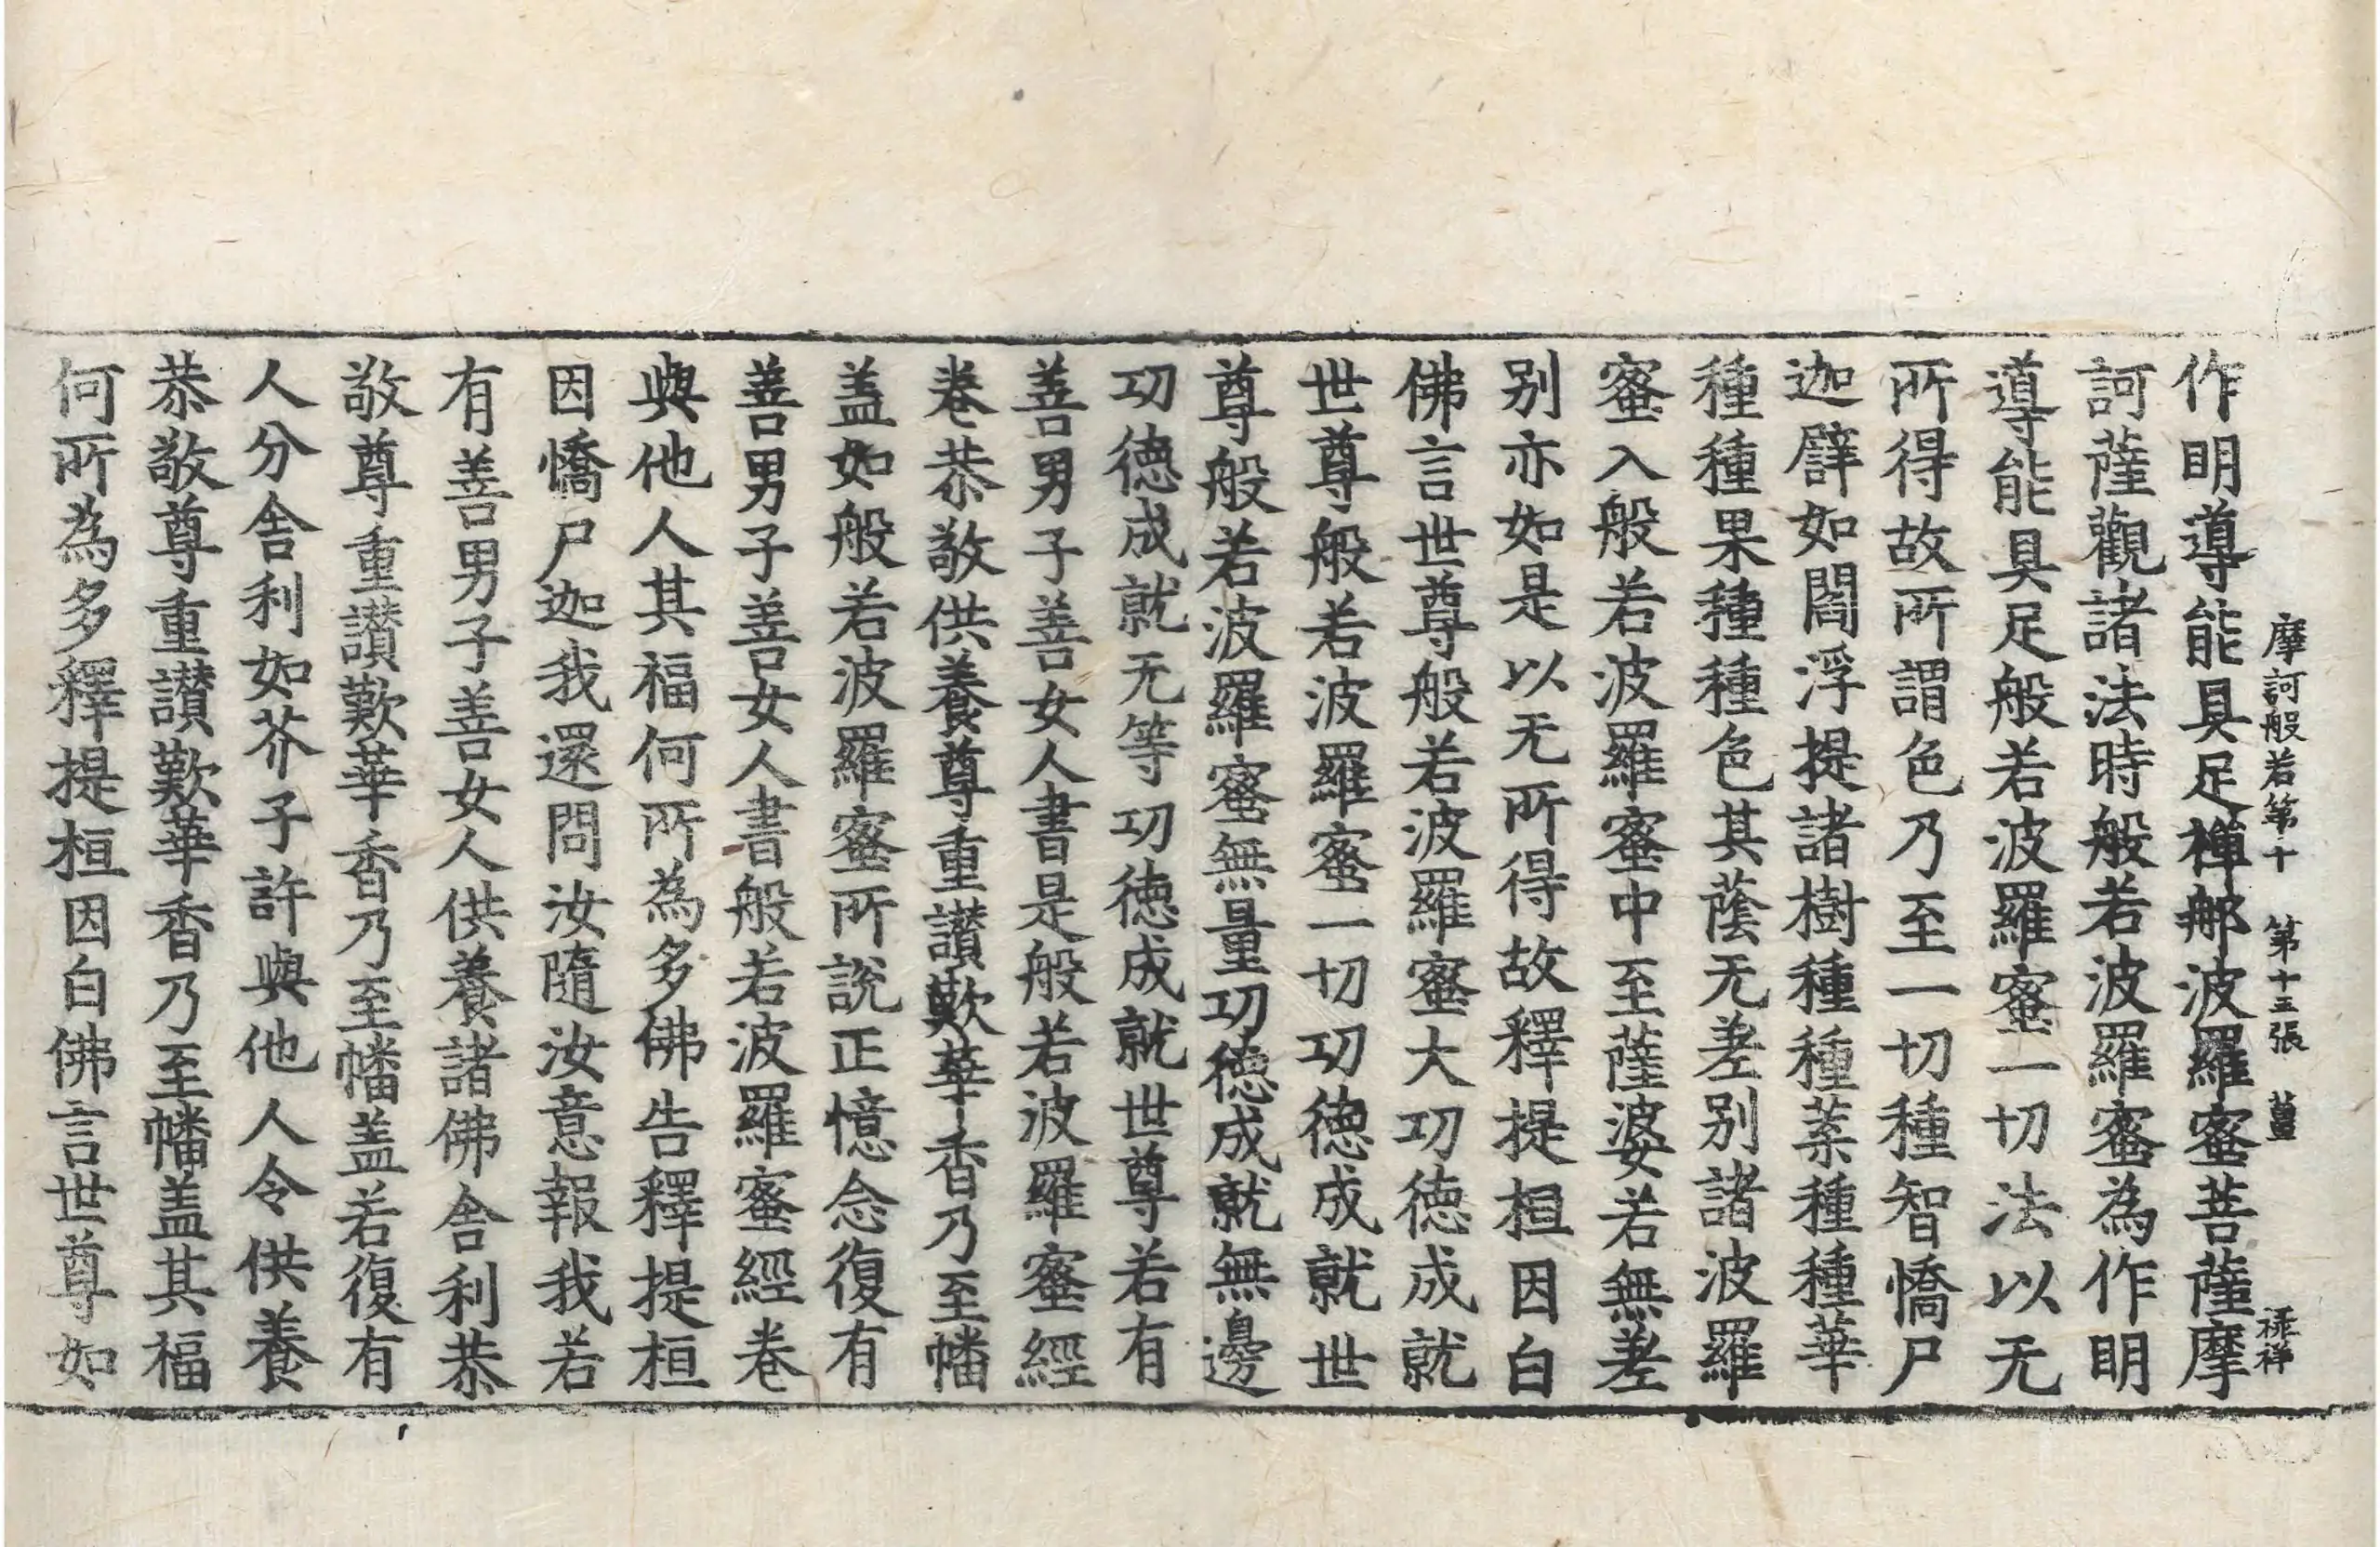 摩訶般若第十 第十五張 薑 禄祥
作明導能具足禪那波羅蜜菩薩摩
訶薩觀諸法時般若波羅蜜為作明
導能具足般若波羅蜜一切法以无
所得故所謂色乃至一切種智憍尸
迦譬如閻浮提諸樹種種葉種種華
種種果種種色其蔭无差別諸波羅
蜜入般若波羅蜜中至薩婆若無差
别亦如是以无所得故釋提桓因白
佛言世尊般若波羅蜜大功徳成就
世尊般若波羅蜜一切功徳成就世
尊般若波羅蜜無量功徳成就無邊
功徳成就无等功徳成就世尊若有
善男子善女人書是般若波羅蜜經
卷恭敬供養尊重讃歎華香乃至幡
盖如般若波羅蜜所說正憶念復有
善男子善女人書般若波羅蜜經卷
與他人其福何所為多佛告釋提桓
因憍尸迦我還問汝隨汝意報我若
有善男子善女人供養諸佛舎利恭
敬尊重讃歎華香乃至幡盖若復有
人分舎利如芥子許與他人令供養
恭敬尊重讃歎華香乃至幡盖其福
何所為多釋提桓因白佛言世尊如